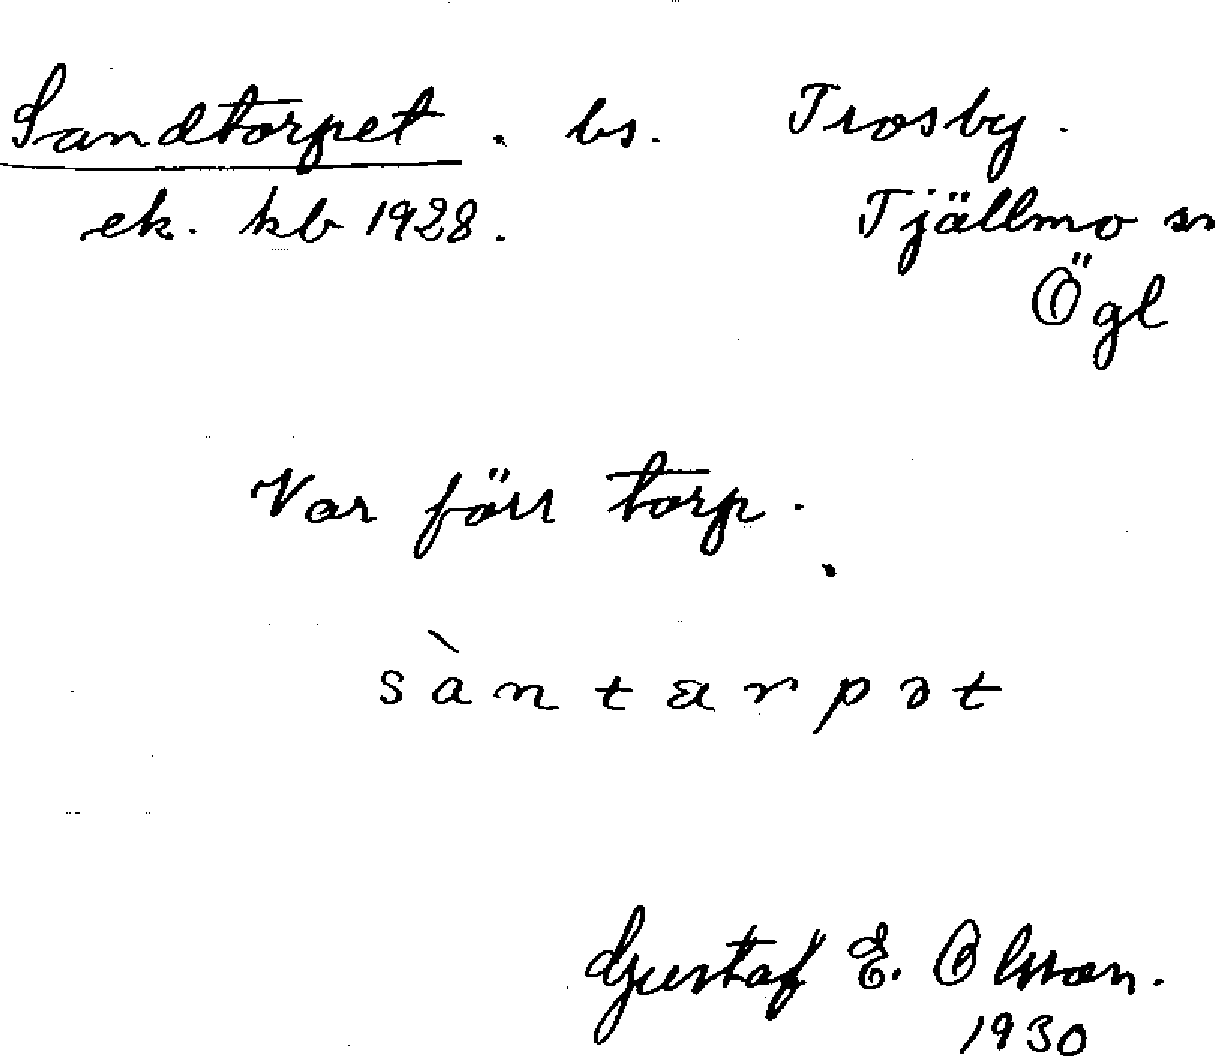 Sandtorpet. bs. Trosby.
ek. kb 1928. Tjällmo sn
Ögl
Var förr torp.
sàntarpət
Gustaf E. Olsson.
1930